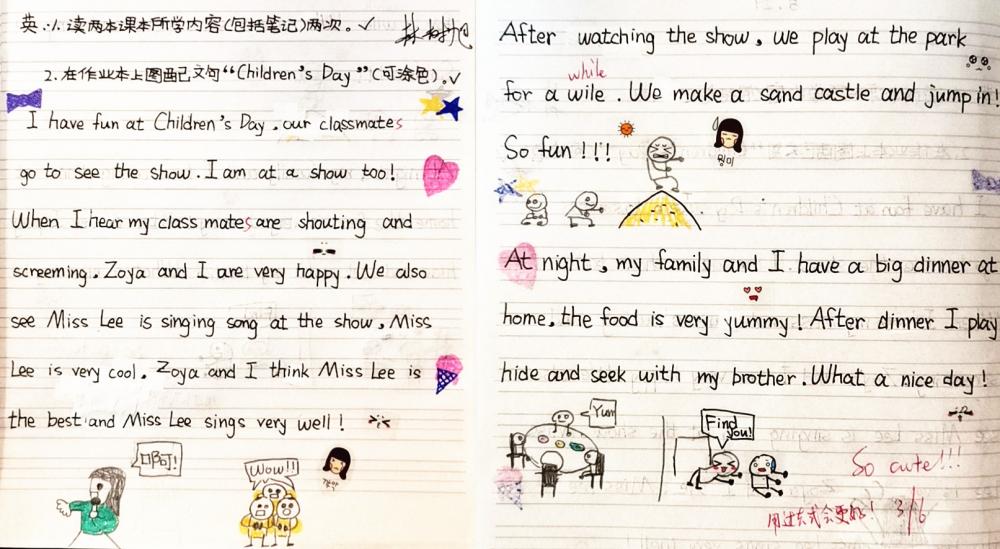 英.1.读两本课本所学内容(包括笔记)两次。✓
2.在作业本上图画己文句“Children's Day”(可涂色)。✓
I have fun at Children's Day . our classmates
go to see the show. I am at a show too!
When I hear my class mates are shouting and
screeming. Zoya and I are very happy. We also
see Miss Lee is singing song at the show, Miss
Lee is very cool. Zoya and I think Miss Lee is
the best and Miss Lee sings very well !
啊!
Wow!!
After watching the show, we play at the park
while
for a wile . We make a sand castle and jump in!
So fun !!!
At night, my family and I have a big dinner at
home, the food is very yummy! After dinner I play
hide and seek with my brother. What a nice day!
Yum
Find
you!
So cute!!!
用过去式会更好! 3/6